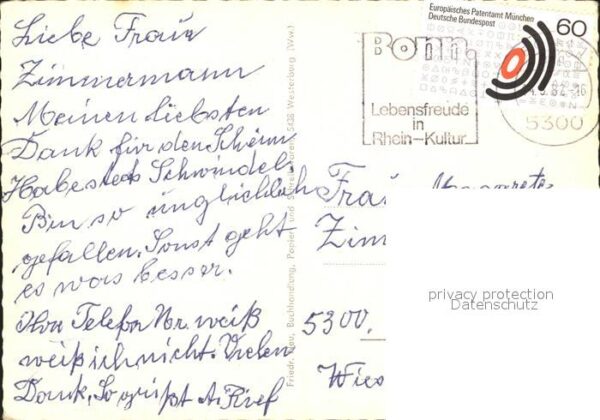 Liebe Frau
Zimmermann
Meinen liebsten
Dank für den Schein
Habe stets Schwindel
Bin so unglücklich
gefallen. Sonst geht
es was besser.
Telefon Nr. weiß
weiß ich nicht. Vielen
Dank, So grüßt A.
Friedr. Buchhandlung, Papier- und Schreibwaren, 5438 Westerburg (Ww.)
Europäisches Patentamt München
Deutsche Bundespost
60
Bonn.
Lebensfreude
in
Rhein-Kultur
5300
Frau Margarete
Zimm
5300.
Wies
privacy protection
Datenschutz